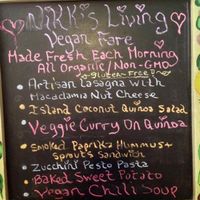 Nikki's Living
Vegan Fare
Made Fresh Each Morning
All Organic/Non-GMO
& Gluten-Free!
• Artisan Lasagna with
Macadamia Nut Cheese
• Island Coconut Quinoa Salad
• Veggie Curry On Quinoa
• Smoked Paprika Hummus +
Sprouts Sandwich
• Zucchini Pesto Pasta
• Baked Sweet Potato
• Vegan Chili Soup